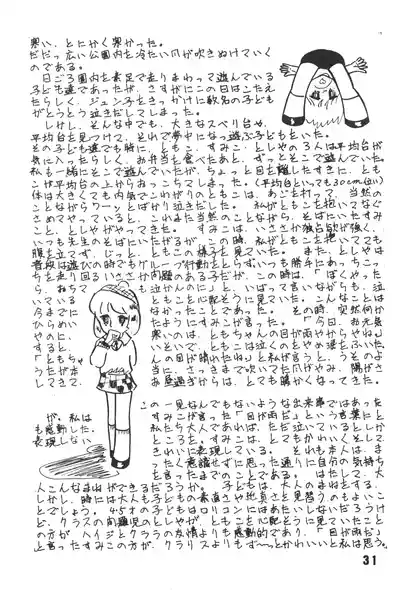 寒い、とにかく寒かった。
だだっ広い公園内を冷たい風が吹きぬけていく
のである。
日ごろ園内を素足で走りまわって遊んでいる
子ども達であったが、さすがにこの日はこたえ
たらしく、ジュン子をきっかけに数名の子ども
がとうとう泣きだしてしまった。
しかし、そんな中でも、大きなスベリ台や、
平均台を見つけて、それで夢中になって遊ぶ子どももいた。
その子ども達でも特に、ともこ、すみこ、としやの3人は平均台が
気に入ったらしく、お弁当を食べたあと、ずっとそこで遊んでいた。
私も一緒にそこで遊んでいたが、ちょっと目を離したすきに、とも
こが平均台の上からおっこちてしまった。(平均台といっても30cm位い)
体は大きくても内気でこわがりのともこは、あごを打って、当然の
ことながらワーンとばかり泣きだした。私がともこを抱いてなぐ
さめてやっていると、これまた当然のことながら、そばにいたすみ
こと、としやがやってきた。すみこは、いささか独占欲が強く、
いつも先生のそばにいたがるが、この時、私がともこを抱いてても
腹を立てず、じっと、ともこの様子を見ていた。また、としやは
普段は遊びの時でもグループ行動をとらず、いつも勝手にあっちこっ
ちを走り回るいささか問題のある子だが、この時は、「ぼくやった
ら、おちても泣かんのに」と、いばって言いながらも、泣
いているともこを心配そうに見ていた。こんなことは
今までになかったことであった。その時、突然何か
ひらめいたようにすみこが言った。「今日、お天気
やのに、寒いのは、ともちゃんの目が雨やからやね」
すると、いそいで、ともこは泣くのをやめ涙をふいた。
「ともちゃんの目が晴れたね」と私が言うと、うそのよ
うだが本当に、さっきまで吹いていた風がやみ、陽がさ
してきて、お昼過ぎからは、とても暖かくなってきた。
この一見なんでもないような出来事ではあった
が、私はすみこが言った「目が雨だ」という言葉にと
ても感動した。私たち大人であれば、ただ泣いているとしか
表現しないところを、すみこは、とてもかわいくそして
きれいに表現している。それも本人は、ま
ったく意識せずに思った通りに自分の気持ち
と言ったまでのことである。はたして、大
人こんなまねができるだろうか。子どもは、大人のまねをする。
しかし、時には大人も子どもの素直さや純真さを見習うのもよいこ
とでしょう。4.5才の子どもはロリコンにはあたいしないだろうけ
ど、クラスの問題児のとしやが、ともこを心配そうに見ていたこと
の方が、ハイジとクララの友情よりも感動的であり、「目が雨だ」
と言ったすみこの方が、クラリスよりもず〜っとかわいいと私は思う。
31